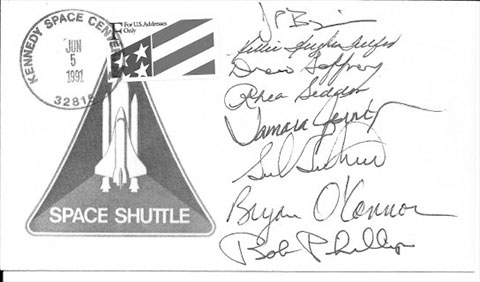 KENNEDY SPACE CENT
JUN
5
1991
32815
F For U.S. Addresses
Only
SPACE SHUTTLE
Millie Hughes-Fulford
Drew Gaffney
Rhea Seddon
Tamara Jernigan
Bryan O'Connor
Bob Phillips